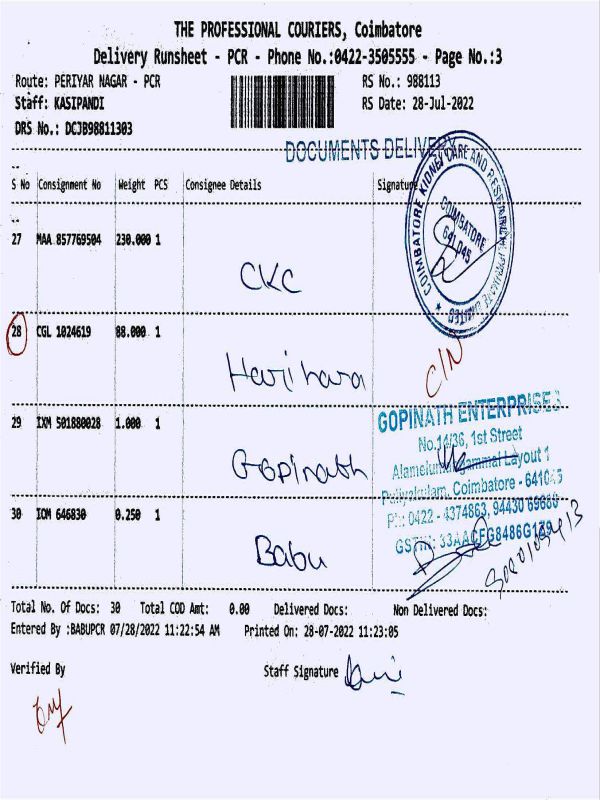 THE PROFESSIONAL COURIERS, Coimbatore
Delivery Runsheet - PCR - Phone No.:0422-3505555 - Page No.:3
Route: PERIYAR NAGAR - PCR RS No.: 988113
Staff: KASIPANDI RS Date: 28-Jul-2022
DRS No.: DCJB98811303
DOCUMENTS DELIVERY
S No Consignment No Weight PCS Consignee Details Signature
COIMBATORE KIDNEY CARE AND
COIMBATORE
641 045
27 MAA 857769504 230.000 1
CKC
28 CGL 1024619 88.000 1
Harihara
CIN
29 IXM 501880028 1.000 1
Gopinath
GOPINATH ENTERPRISES
No.14/36, 1st Street
Layout 1
Puliyakulam, Coimbatore - 641045
Ph: 0422 - 4374863, 94430
GSTIN: 33AACFG8486G1
30 IOM 646830 0.250 1
Babu
Total No. Of Docs: 30 Total COD Amt: 0.00 Delivered Docs: Non Delivered Docs:
Entered By :BABUPCR 07/28/2022 11:22:54 AM Printed On: 28-07-2022 11:23:05
Verified By Staff Signature